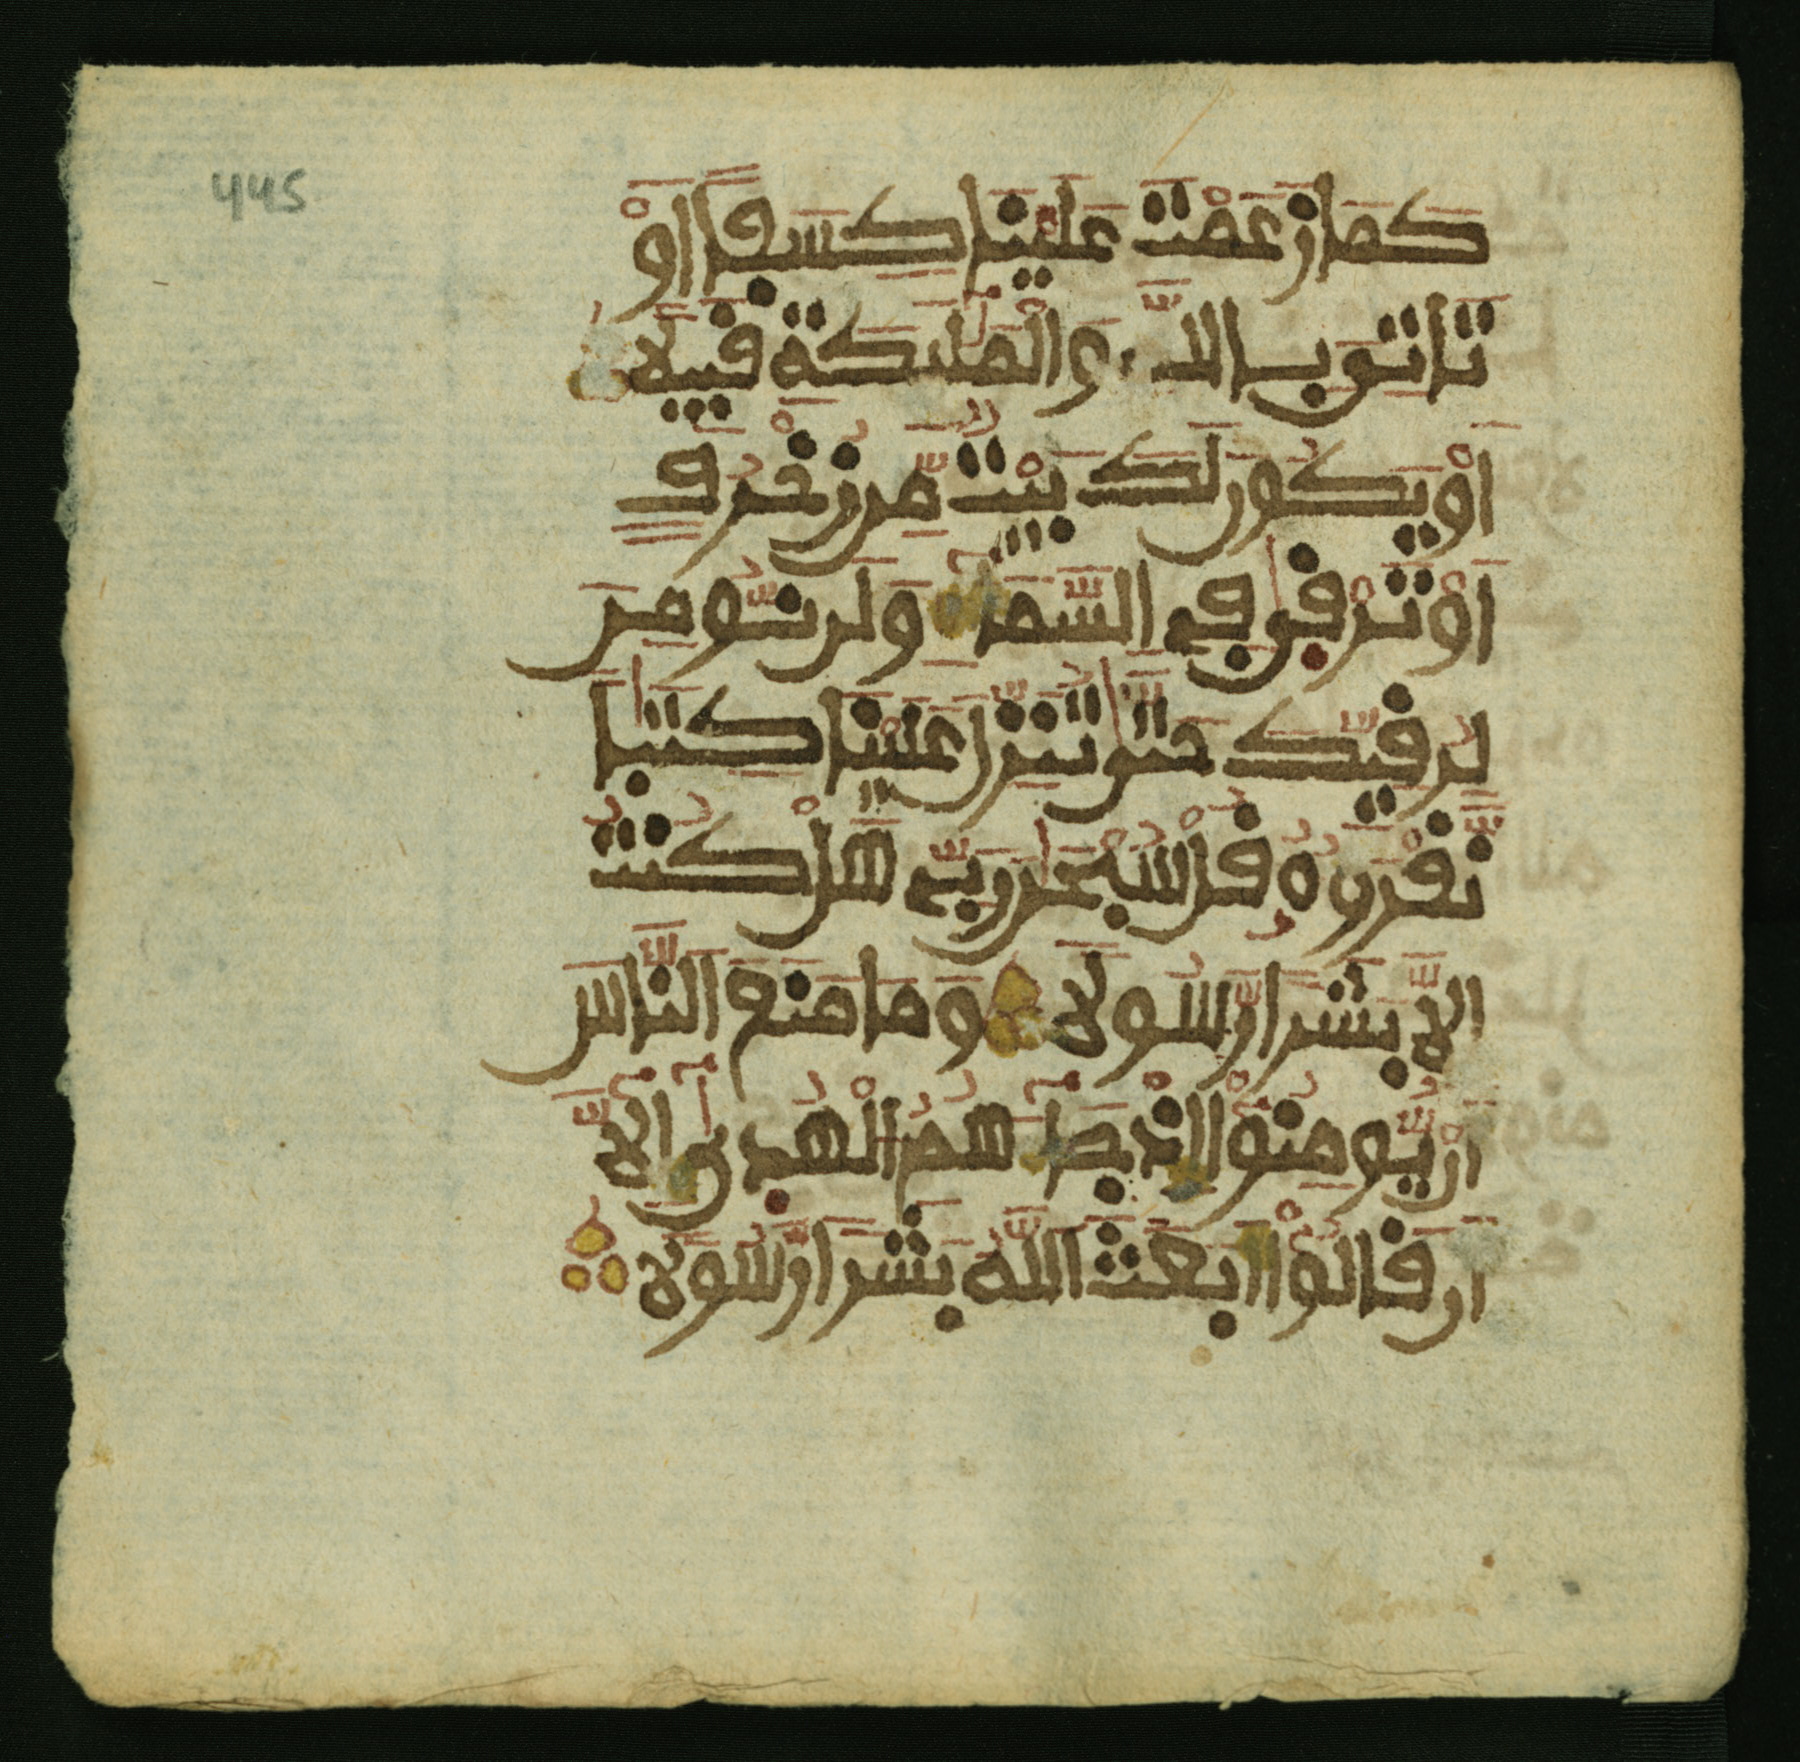 445
كما زعمت علينا كسفا او
تاتي بالله والمليكة قبيلا
او يكون لك بيت من زخرف
او ترقى في السماء ولن نومن
لرقيك حتى تنزل علينا كتبا
نقرؤه قل سبحن ربي هل كنت
الا بشرا رسولا وما منع الناس
ان يومنوا اذ جاءهم الهدى الا
ان قالوا ابعث الله بشرا رسولا